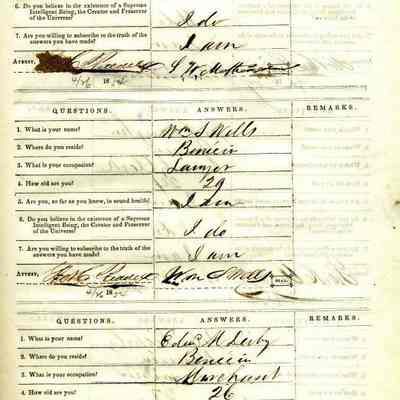 6. Do you believe in the existence of a Supreme
Intelligent Being, the Creator and Preserver
of the Universe?
I do
7. Are you willing to subscribe to the truth of the
answers you have made?
I am
ATTEST,
18
QUESTIONS. ANSWERS. REMARKS.
1. What is your name? Wm S Wells
2. Where do you reside? Benicia
3. What is your occupation? Lawyer
4. How old are you? 29
5. Are you, so far as you know, in sound health? I am
6. Do you believe in the existence of a Supreme
Intelligent Being, the Creator and Preserver
of the Universe?
I do
7. Are you willing to subscribe to the truth of the
answers you have made?
I am
ATTEST, Wm S Wells
18
QUESTIONS. ANSWERS. REMARKS.
1. What is your name? Derby
2. Where do you reside? Benicia
3. What is your occupation? Merchant
4. How old are you? 26